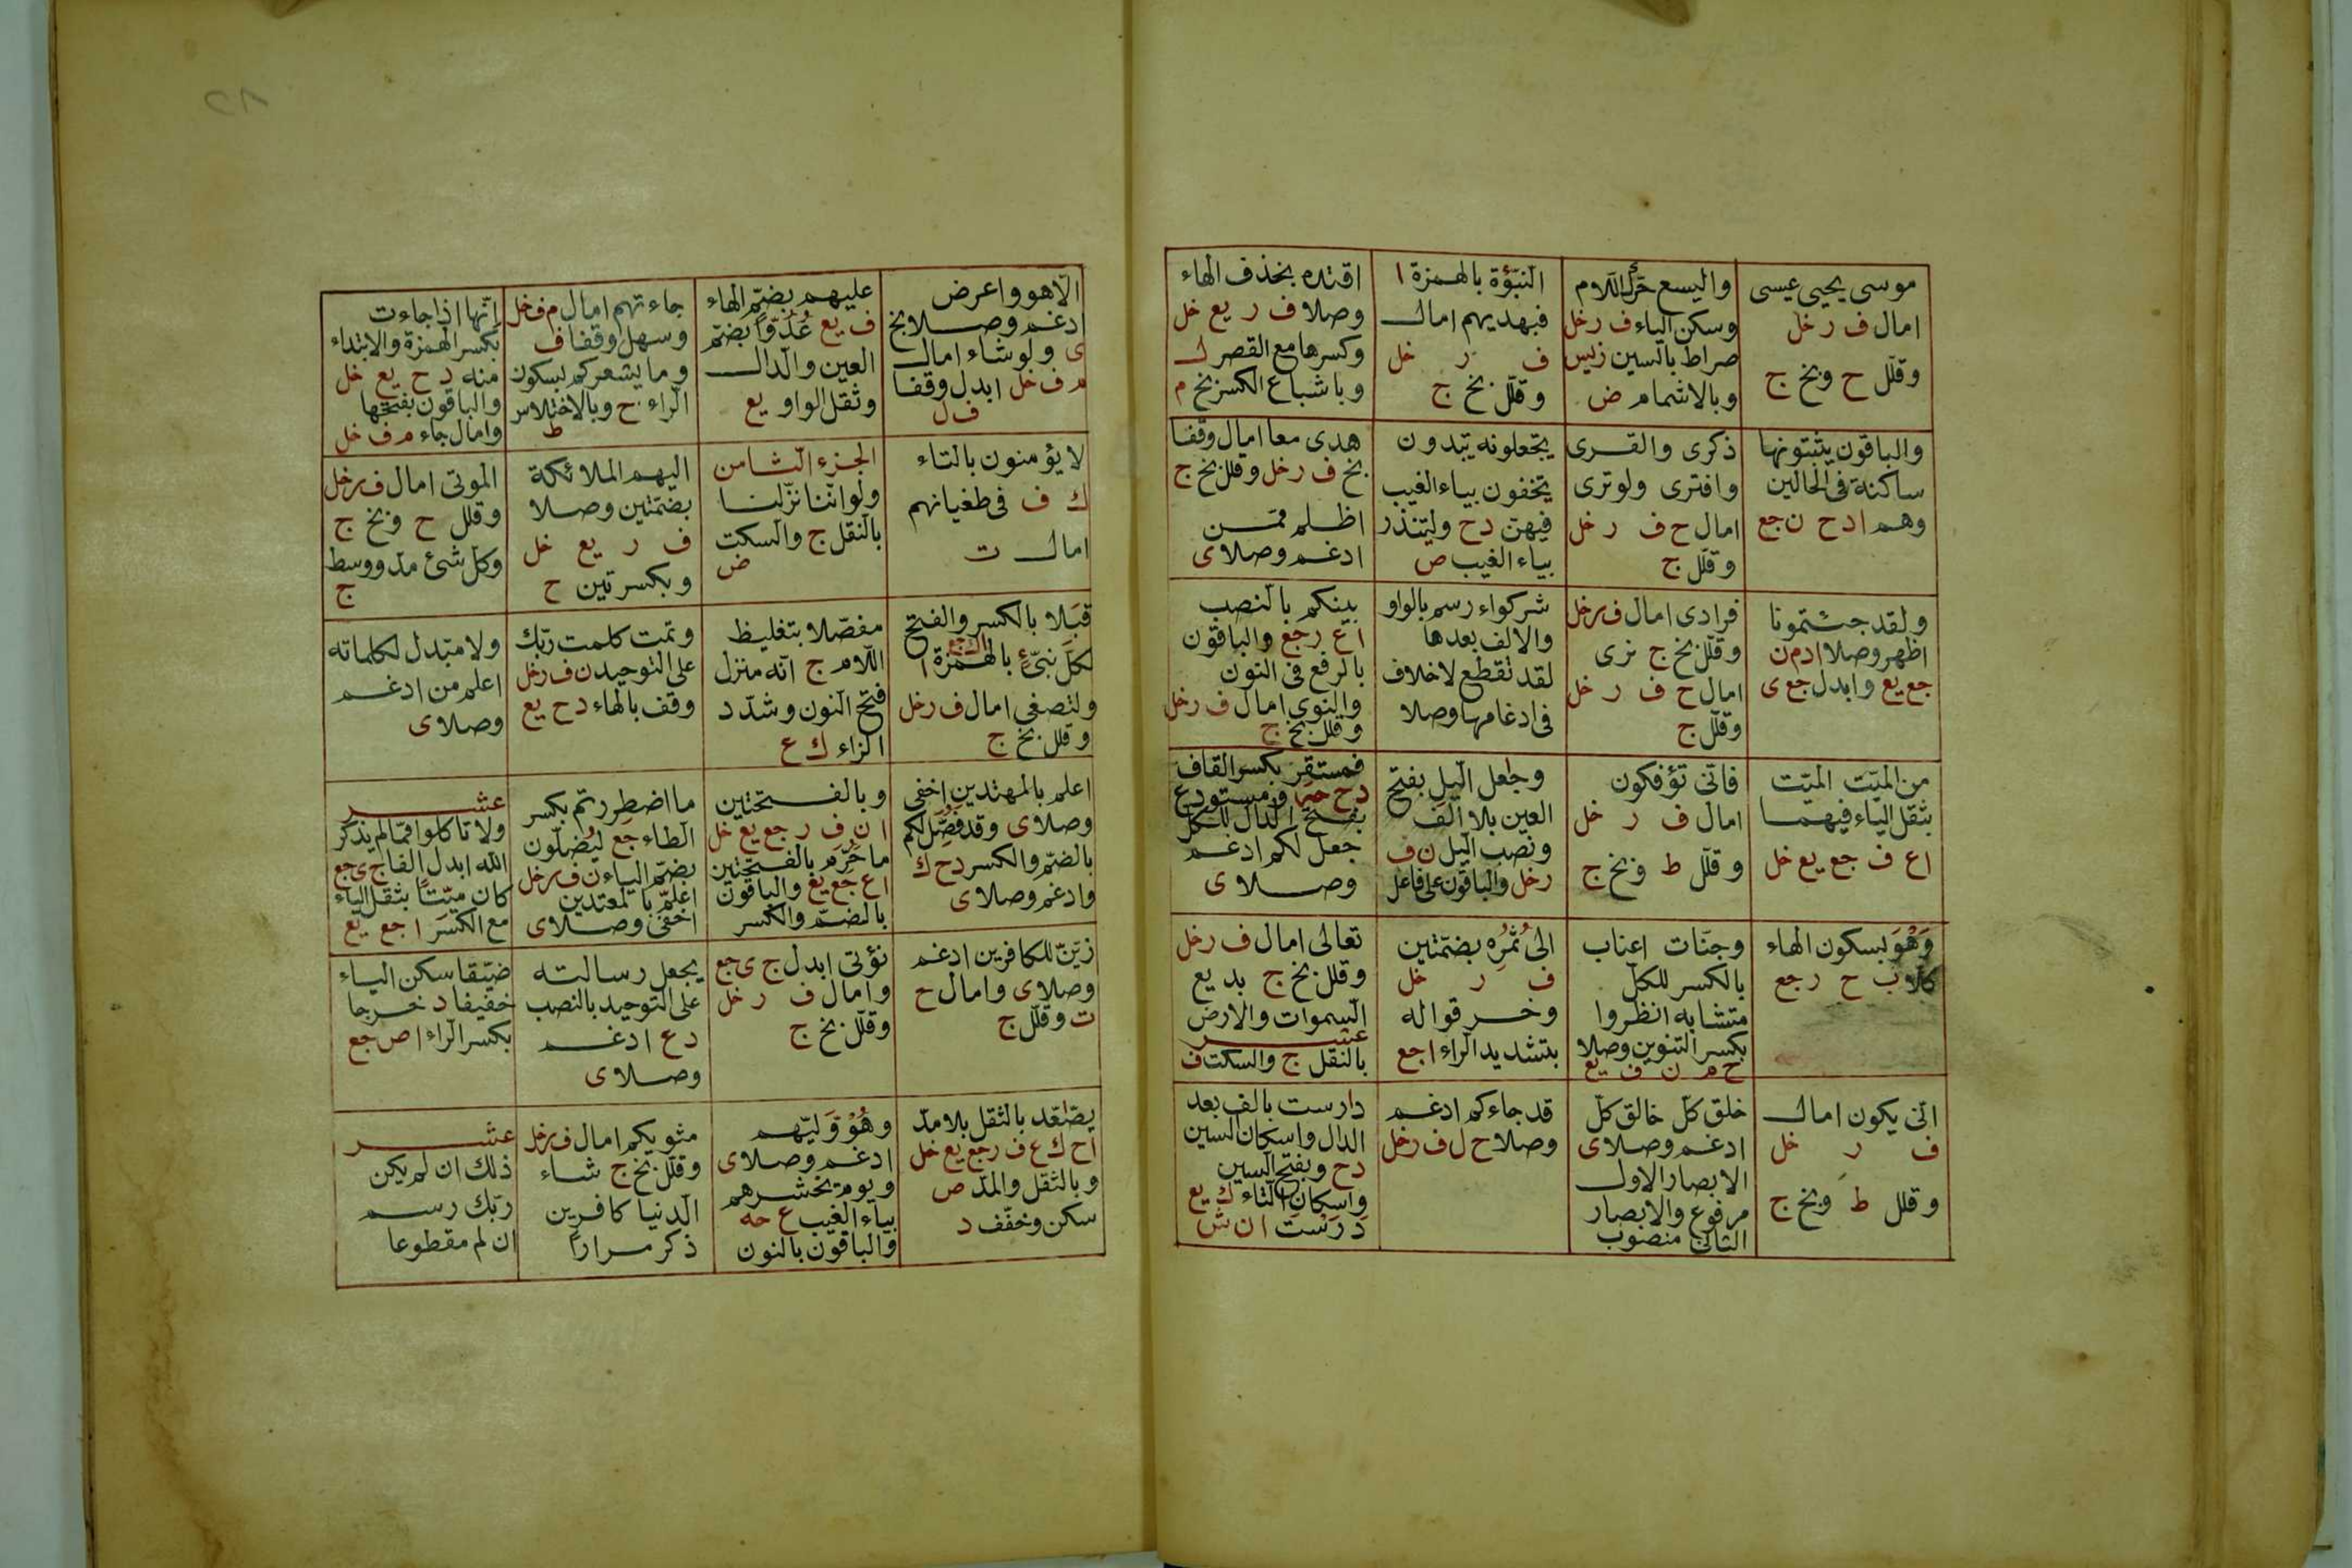 موسى يحيى عيسى
امال ف ر خل
وقلل ح وبخ ج
واليسع حرك اللام
وسكن الياء ف ر خل
صراط بالسين زيس
وبالاشمام ض
النبؤة بالهمزة ا
فبهديهم امال
ف ر خل
وقلل بخ ج
اقتده بحذف الهاء
وصلا ف ر يع خل
وكسرها مع القصر ل
وباشباع الكسر بخ م
والباقون يثبتونها
ساكنة فى الحالين
وهم ا د ح ن جع
ذكرى والقرى
وافترى ولو ترى
امال ح ف ر خل
وقلل ج
يجعلونه يبدون
يخفون بياء الغيب
فيهن د ح ولينذر
بياء الغيب ص
هدى معا امال وقفا
بخ ف ر خل وقلل بخ ج
اظلم ممن
ادغم وصلا ى
ولقد جئتمونا
اظهر وصلا ا د م ن
جع يع وابدل جع ى
فرادى امال ف ر خل
وقلل بخ ج نرى
امال ح ف ر خل
وقلل ج
شركواء رسم بالواو
والالف بعدها
لقد تقطع لاخلاف
فى ادغامها وصلا
بينكم بالنصب
ا ع ر جع والباقون
بالرفع فى النون
والنوى امال ف ر خل
وقلل بخ ج
من الميت الميت
بثقل الياء فيهما
ا ع ف جع يع خل
فانى تؤفكون
امال ف ر خل
وقلل ط وبخ ج
وجعل اليل بفتح
العين بلا الف
ونصب اليل ن ف
ر خل والباقون على فاعل
فمستقر بكسر القاف
د ح حه ومستودع
بفتح الدال للكل
جعل لكم ادغم
وصلا ى
وهو بسكون الهاء
كلا ب ح ر جع
وجنات اعناب
بالكسر للكل
متشابه انظروا
بكسر التنوين وصلا
ح م ن ف يع
الى ثمره بضمتين
ف ر خل
وخرقوا له
بتشديد الراء ا جع
تعالى امال ف ر خل
وقلل بخ ج بديع
السموات والارض
عشر
بالنقل ج والسكت ف
انى يكون امال
ف ر خل
وقلل ط وبخ ج
خلق كل خالق كل
ادغم وصلا ى
الابصار الاول
مرفوع والابصار
الثانى منصوب
قد جاءكم ادغم
وصلا ح ل ف ر خل
دارست بالف بعد
الدال واسكان السين
د ح وبفتح السين
واسكان التاء ك يع
درست ا ن ش
الا هو واعرض
ادغم وصلا بخ
ى ولو شاء امال
م ف خل ابدل وقفا
ف ل
عليهم بضم الهاء
ف يع عدوا بضم
العين والدال
وثقل الواو يع
جاءتهم امال م ف خل
وسهل وقفا ف
وما يشعركم بسكون
الراء ح وبالاختلاس
ط
انها اذا جاءت
بكسر الهمزة والابتداء
منه د ح يع خل
والباقون بفتحها
وامال جاء م ف خل
لا يؤمنون بالتاء
ك ف فى طغيانهم
امال ت
الجزء الثامن
ولو اننا نزلنا
بالنقل ج والسكت
ض
اليهم الملائكة
بضمتين وصلا
ف ر يع خل
وبكسرتين ح
الموتى امال ف ر خل
وقلل ح وبخ ج
وكل شئ مد ووسط
ج
قبلا بالكسر والفتح
ا ك جع
لكل نبئ بالهمزة ا
ولتصغى امال ف ر خل
وقلل بخ ج
مفصلا بتغليظ
اللام ج انه منزل
فتح النون وشدد
الزاء ك ع
وتمت كلمت ربك
على التوحيد ن ف ر خل
وقف بالهاء د ح يع
ولا مبدل لكلماته
اعلم من ادغم
وصلا ى
اعلم بالمهتدين اخفى
وصلا ى وقد فصل لكم
بالضم والكسر د ح ك
وادغم وصلا ى
وبالفتحتين
ا ن ف ر جع يع خل
ما حرم بالفتحتين
ا ع جع يع والباقون
بالضم والكسر
ما اضطررتم بكسر
الطاء جع ليضلون
بضم الياء ن ف ر خل
اعلم بالمعتدين
اخفى وصلا ى
عشر
ولا تاكلوا مما لم يذكر
الله ابدل الفا ج ى جع
كان ميتا بثقل الياء
مع الكسر ا جع يع
زين للكافرين ادغم
وصلا ى وامال ح
ت وقلل ج
نؤتى ابدل ج ى جع
وامال ف ر خل
وقلل بخ ج
يجعل رسالته
على التوحيد بالنصب
د ع ادغم
وصلا ى
ضيقا سكن الياء
خفيفا د حرجا
بكسر الراء ا ص جع
يصعد بالثقل بلا مد
ا ح ك ع ف ر جع يع خل
وبالثقل والمد ص
سكن وخفف د
وهو وليهم
ادغم وصلا ى
ويوم يحشرهم
بياء الغيب ع حه
والباقون بالنون
مثويكم امال ف ر خل
وقلل بخ ج شاء
الدنيا كافرين
ذكر مرارا
عشر
ذلك ان لم يكن
ربك رسم
ان لم مقطوعا